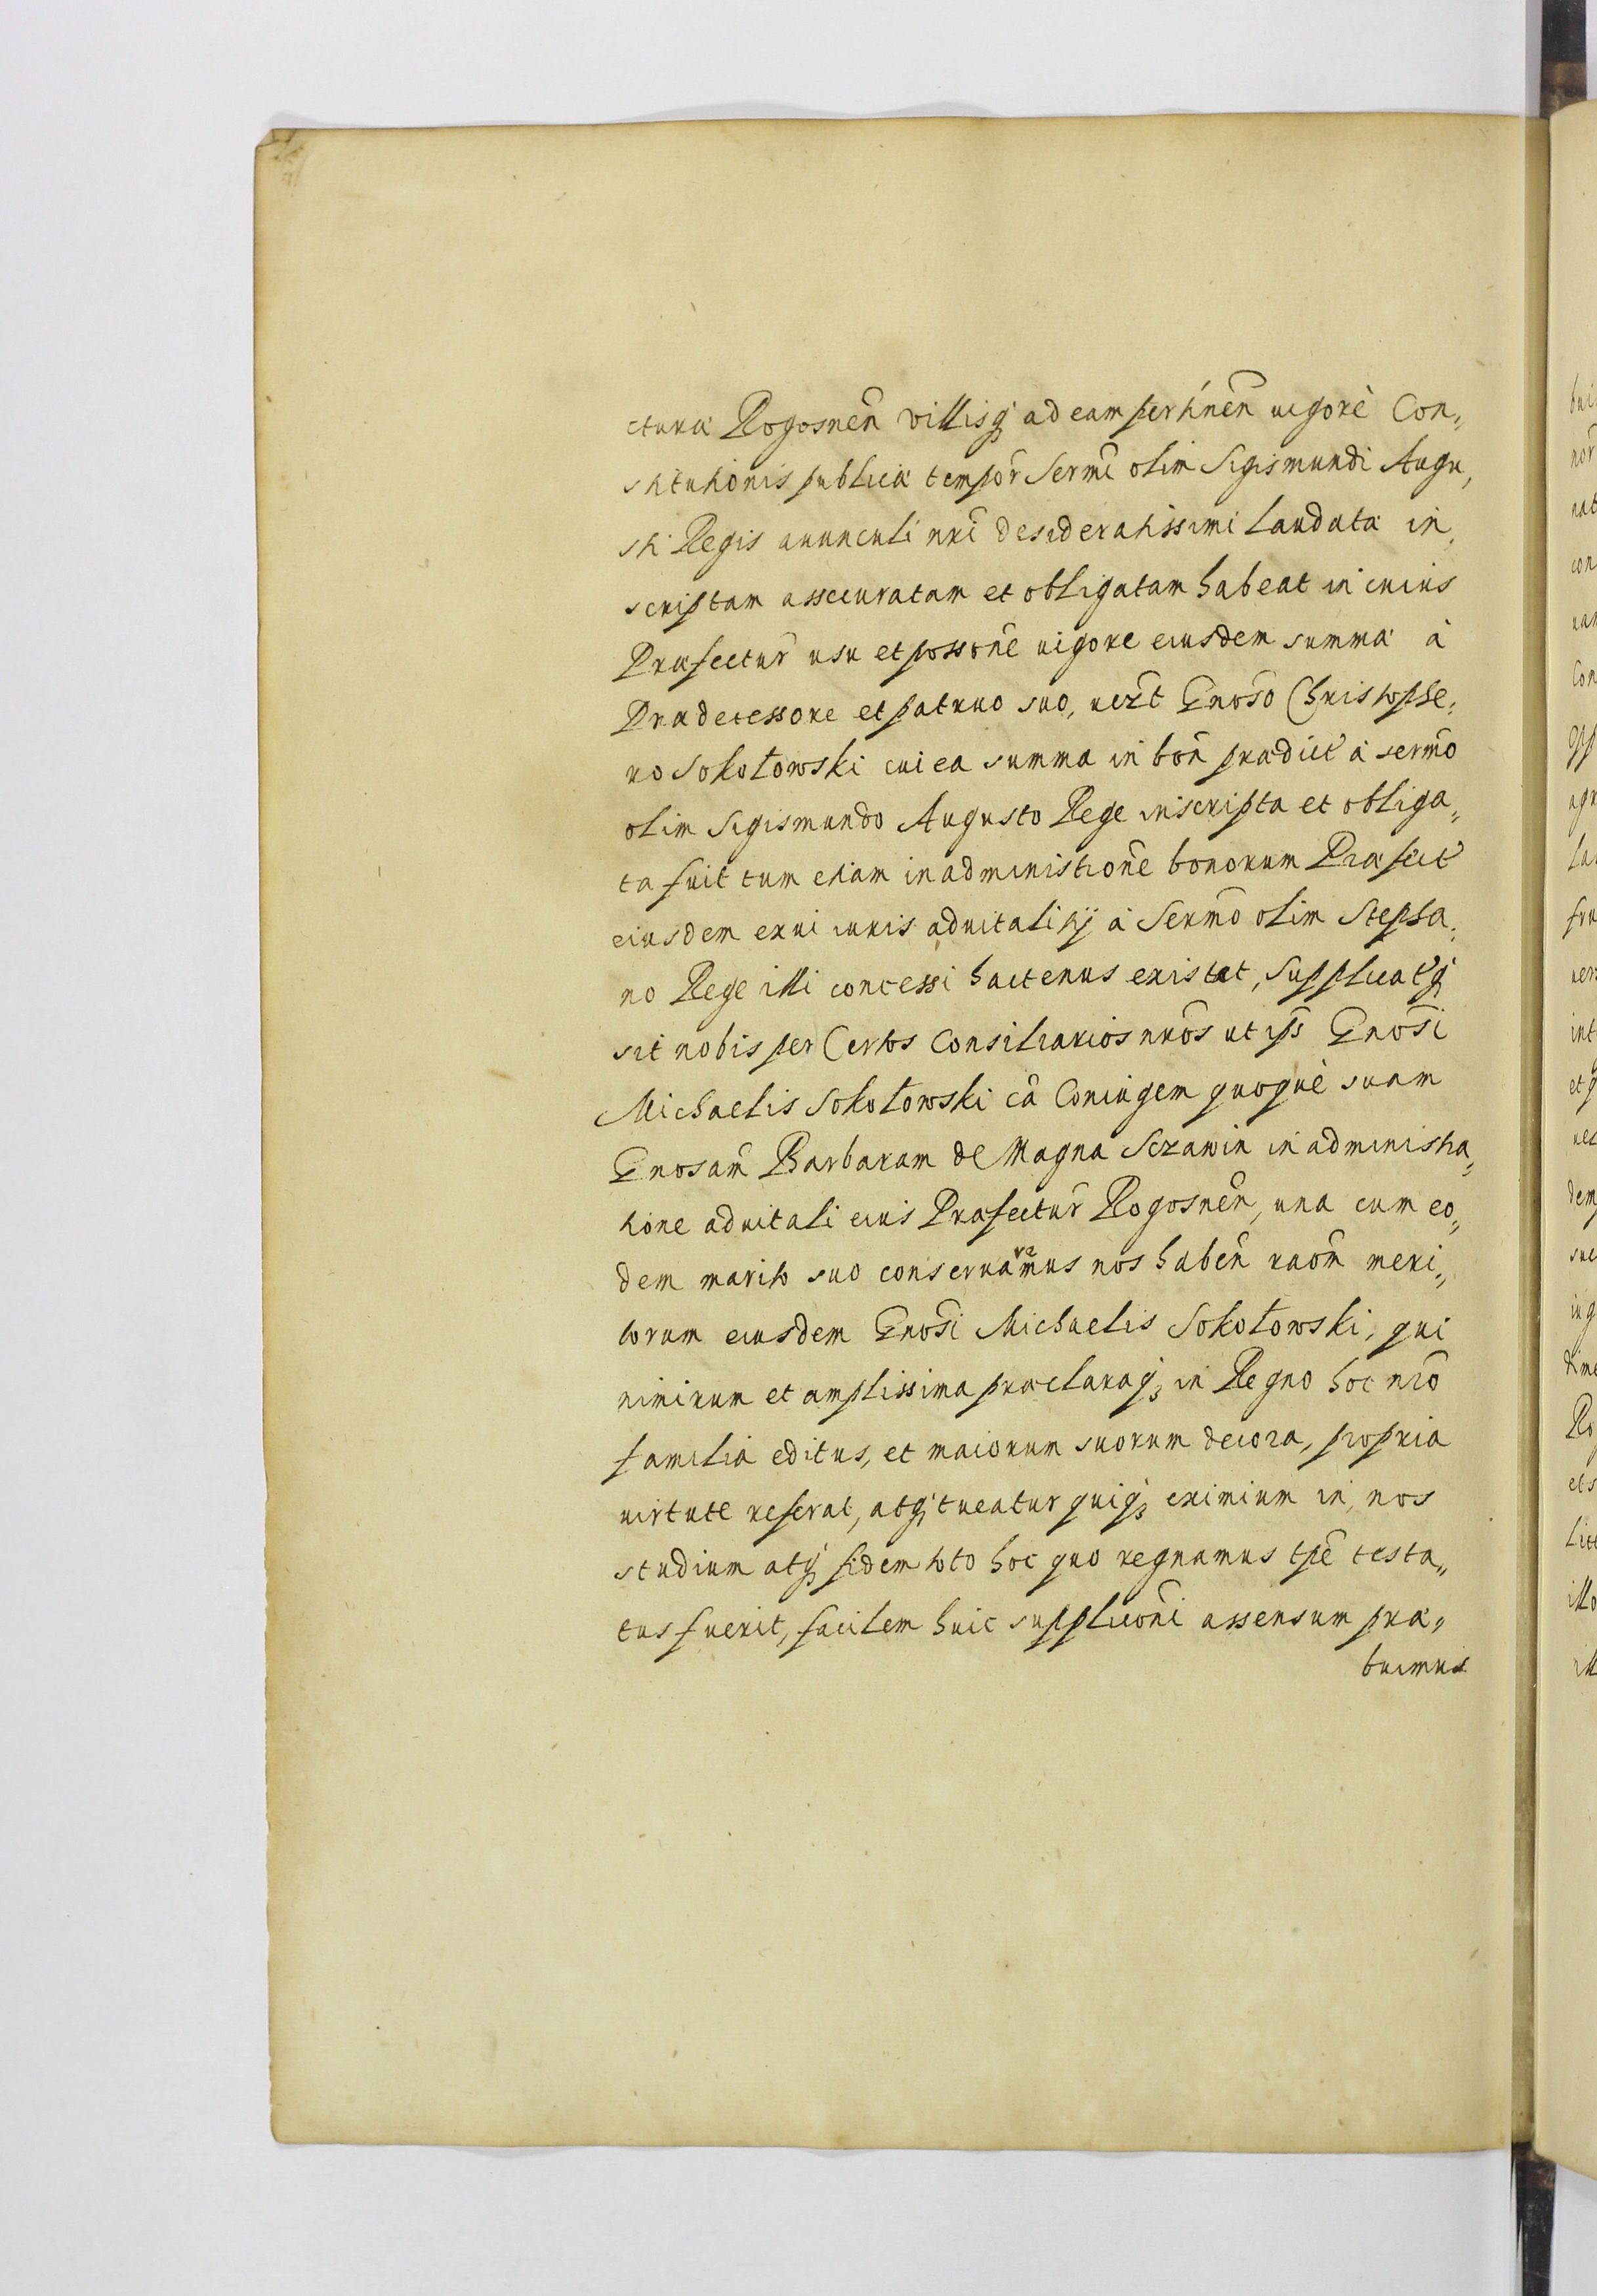 cturæ Rogosnen̄ villisq₃ ad eam pertinen̄ uigore Con„
stitutionis publicæ tempor̄ Serm̄i olim Sigismundi Augu„
sti Regis auunculi nr̄i desideratissimi laudatæ in„
scriptam assecuratam et obligatam habeat in cuius
Præfectur̄ usu et posson̄e uigore eiusdem summæ à
Prædecessore et patruo suo, uizt Gnoso Christophe„
ro Sokołowski cui ea summa in bon̄ prædict à serm̄o
olim Sigismundo Augusto Rege inscripta et obliga„
ta fuit tum etiam in administione bonorum Præfect
eiusdem ex ui iuris aduitalitij à Serm̄o olim Stepha„
no Rege illi concessi hactenus existat, Supplicatq₃
sit nobis per Certos Consiliarios nr̄os ut ips̄ Gnosi
Michaelis Sokołowski cā Coniugem quoquè suam
Gnosam̄ Barbaram de Magna Sczawin in administra„
tione aduitali eius Præfectur̄ Rogosnen̄, una cum eo„
dem marito suo conseruaremus nos haben̄ raōm meri„
torum eiusdem Gnosi Michaelis Sokołowski, qui
nimirum et amplissima præclaraq₃ in Regno hoc nr̄o
familia editus, et maiorum suorum decora, propria
uirtute referat, atq₃ tueatur quiq₃ eximium in nos
studium atq₃ fidem toto hoc quo regnamus tp̄e testa„
tus fuerit, facilem huic supplicōni assensum præ„
buimus